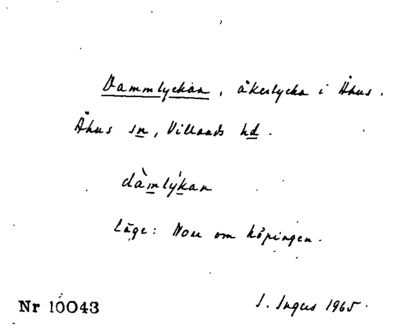 Dammlyckan, åkerlycka i Åhus.
Åhus sn, Villands hd.
dàmlýkan
Läge: Norr om köpingen.
Nr 10043 S. Ingers 1965.